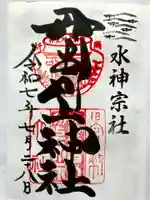 水神宗社
丹生川上神社
令和七年七月二八日